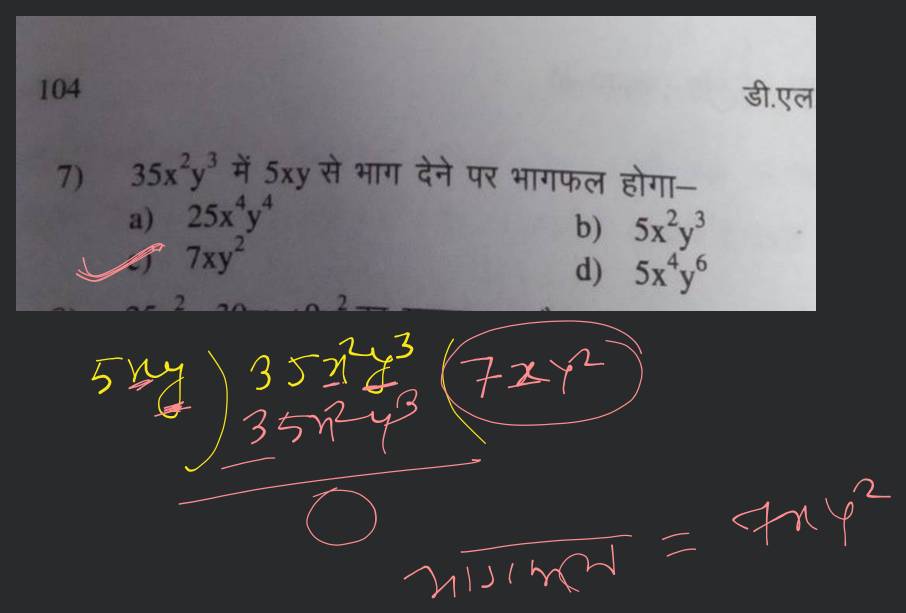 104
डी.एल
7) 35x²y³ में 5xy से भाग देने पर भागफल होगा–
a) 25x⁴y⁴ b) 5x²y³
c) 7xy² d) 5x⁴y⁶
5xy ) 35x²y³ ( 7xy²
35x²y³
0
भागफल = 7xy²